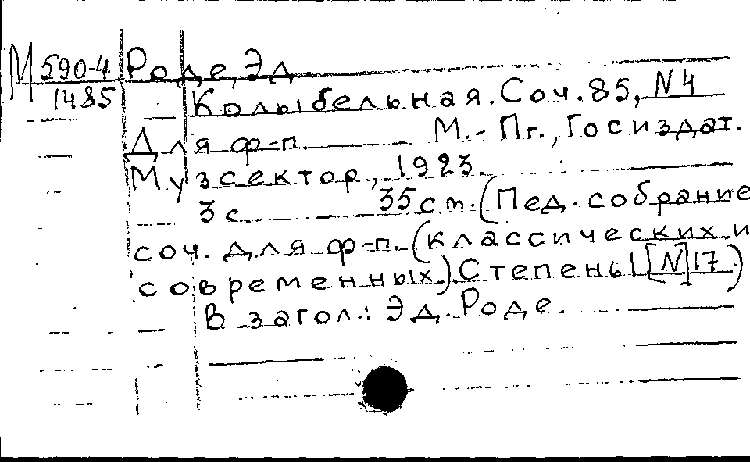 М 590-4 Роде, Эд.
1485 Колыбельная. Соч. 85, N4
Для ф-п. М.-Пг., Госиздат.
Музсектор, 1923.
3 с. 35 см. (Пед. собрание
соч. для ф-п. (классических и
современных.) Степень I [N] 17.)
В загол.: Эд. Роде.